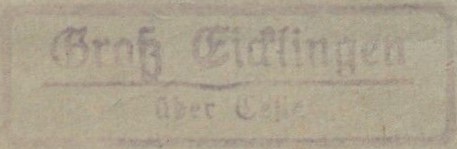 Groß Eicklingen
über Celle